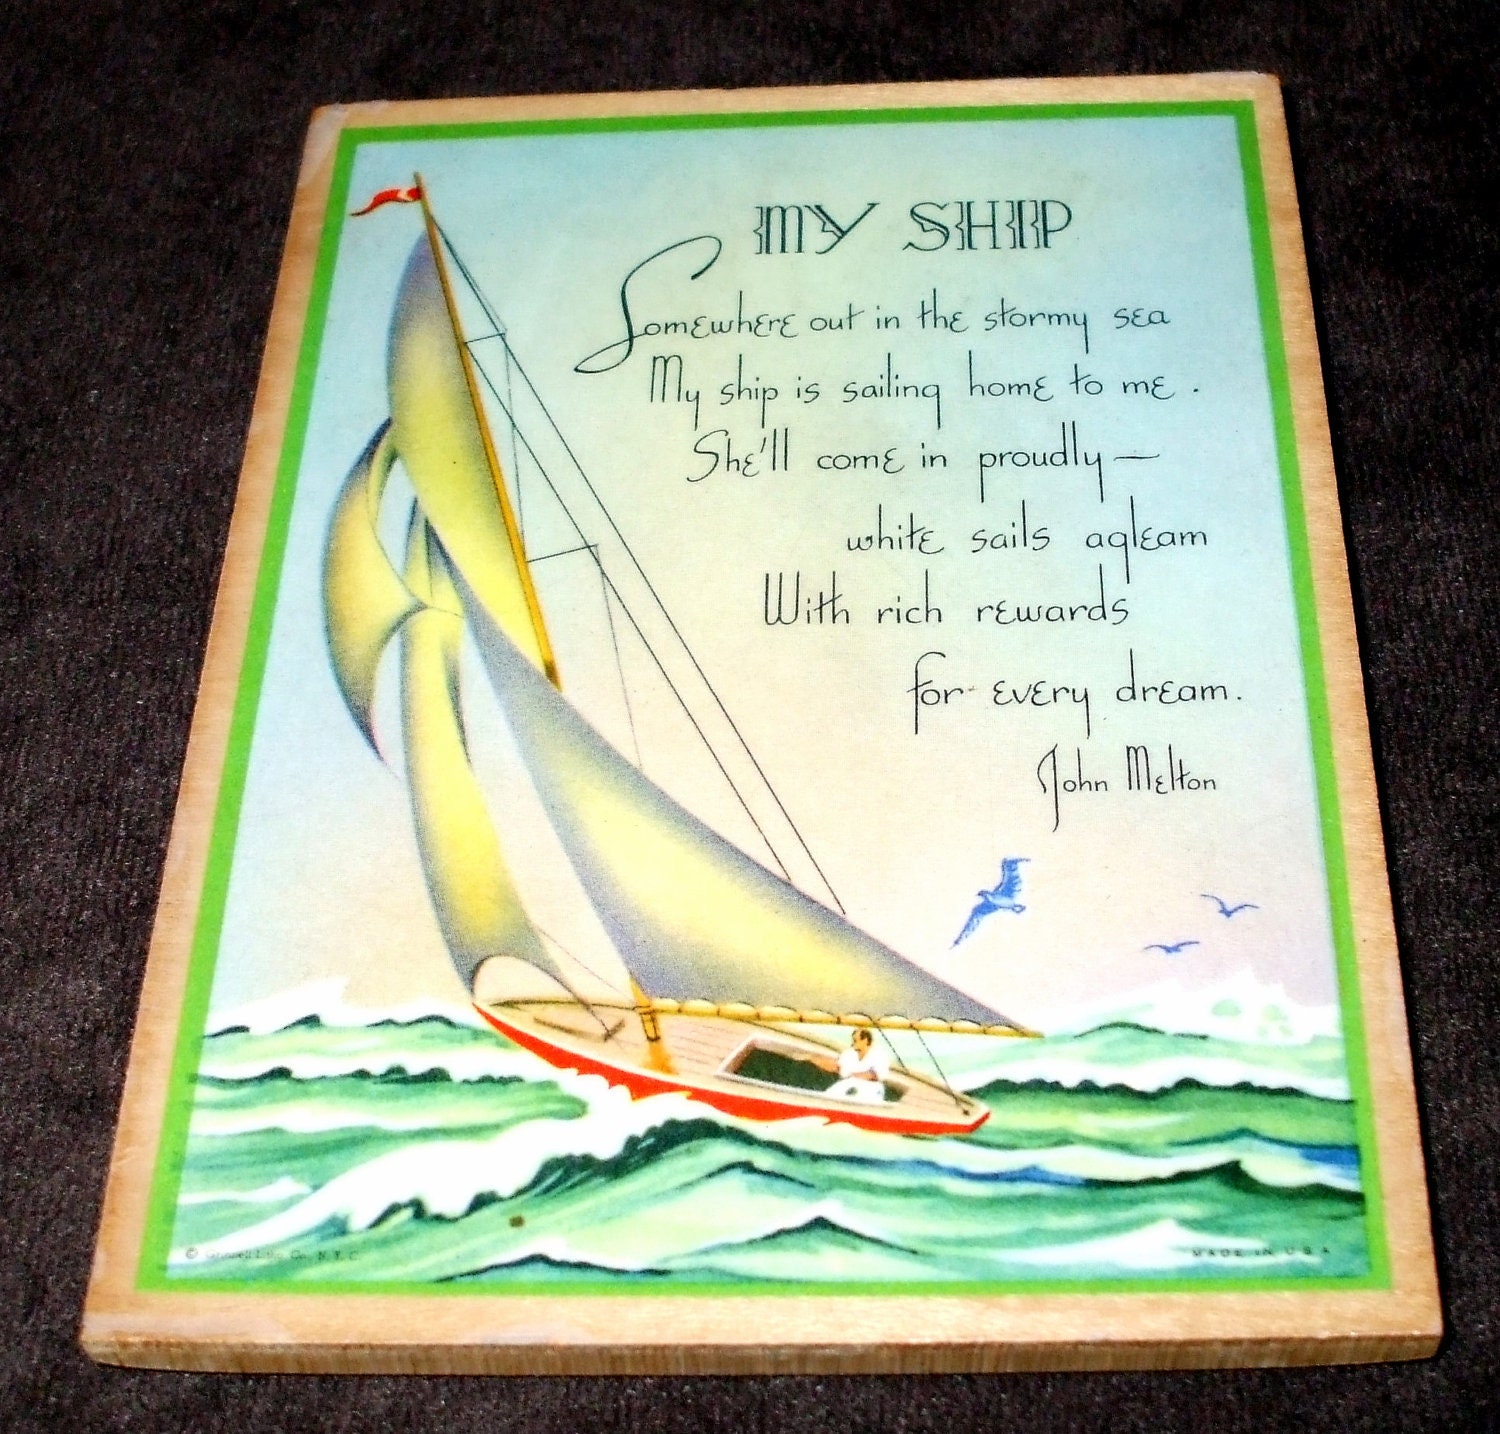 MY SHIP
Somewhere out in the stormy sea
My ship is sailing home to me.
She'll come in proudly—
white sails agleam
With rich rewards
for every dream.
John Melton
© Co. N.Y.C.
MADE IN U S A